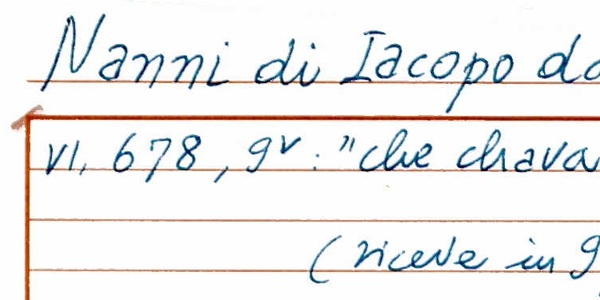 Nanni di Iacopo da
VI, 678, 9v: "che chava
(riceve in g